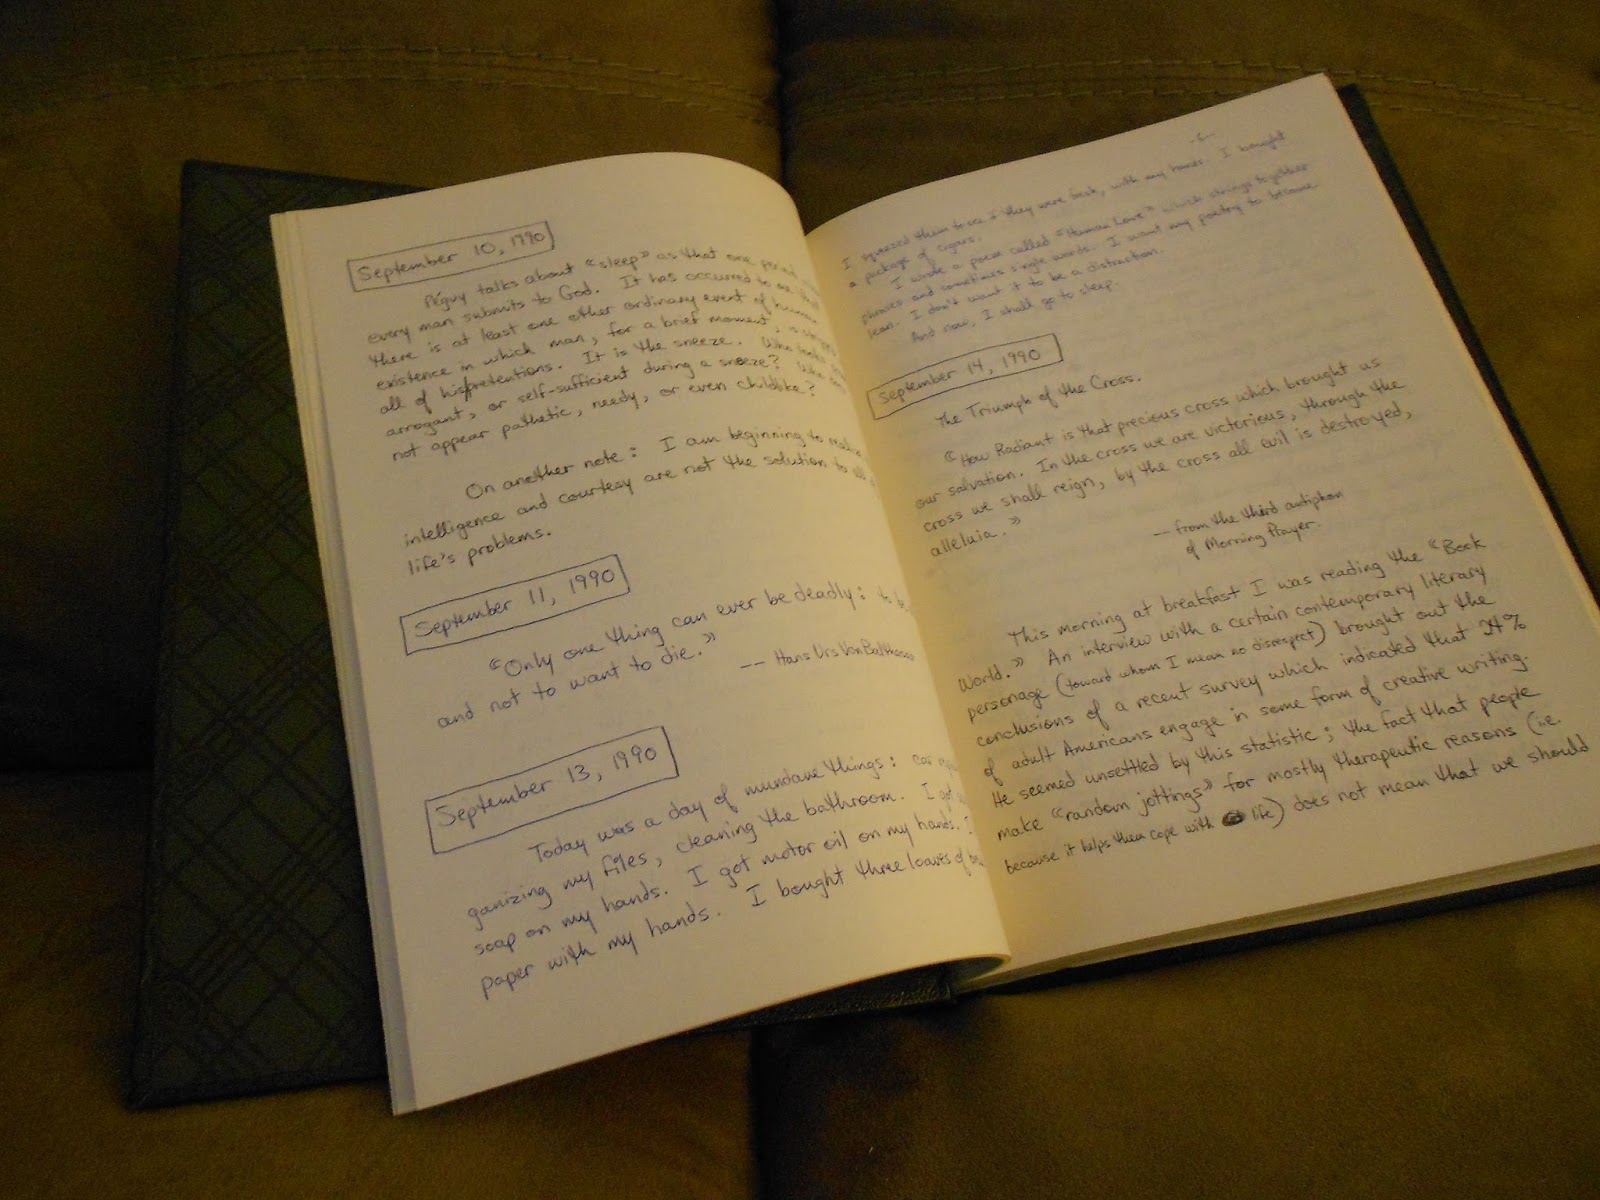 September 10, 1990
Péguy talks about "sleep" as that one period
every man submits to God. It has occurred to me that
there is at least one other ordinary event of human
existence in which man, for a brief moment, is stripped
all of his pretentions. It is the sneeze. Who looks
arrogant, or self-sufficient during a sneeze? Who does
not appear pathetic, needy, or even childlike?
On another note: I am beginning to realize
intelligence and courtesy are not the solution to all
life's problems.
September 11, 1990
"Only one thing can ever be deadly: to be
and not to want to die."
-- Hans Urs Von Balthasar
September 13, 1990
Today was a day of mundane things: car
ganizing my files, cleaning the bathroom. I got
soap on my hands. I got motor oil on my hands. I
paper with my hands. I bought three loaves of
I squeezed them to see if they were fresh, with my hands. I bought
a package of cigars.
I wrote a poem called "Human Love" which strings together
phrases and sometimes single words. I want my poetry to become
lean. I don't want it to be a distraction.
And now, I shall go to sleep.
September 14, 1990
The Triumph of the Cross.
"How Radiant is that precious cross which brought us
our salvation. In the cross we are victorious, through the
cross we shall reign, by the cross all evil is destroyed,
alleluia."
-- from the third antiphon
of Morning Prayer.
This morning at breakfast I was reading the "Book
World." An interview with a certain contemporary literary
personage (toward whom I mean no disrespect) brought out the
conclusions of a recent survey which indicated that 24%
of adult Americans engage in some form of creative writing.
He seemed unsettled by this statistic; the fact that people
make "random jottings" for mostly therapeutic reasons (i.e.
because it helps them cope with life) does not mean that we should